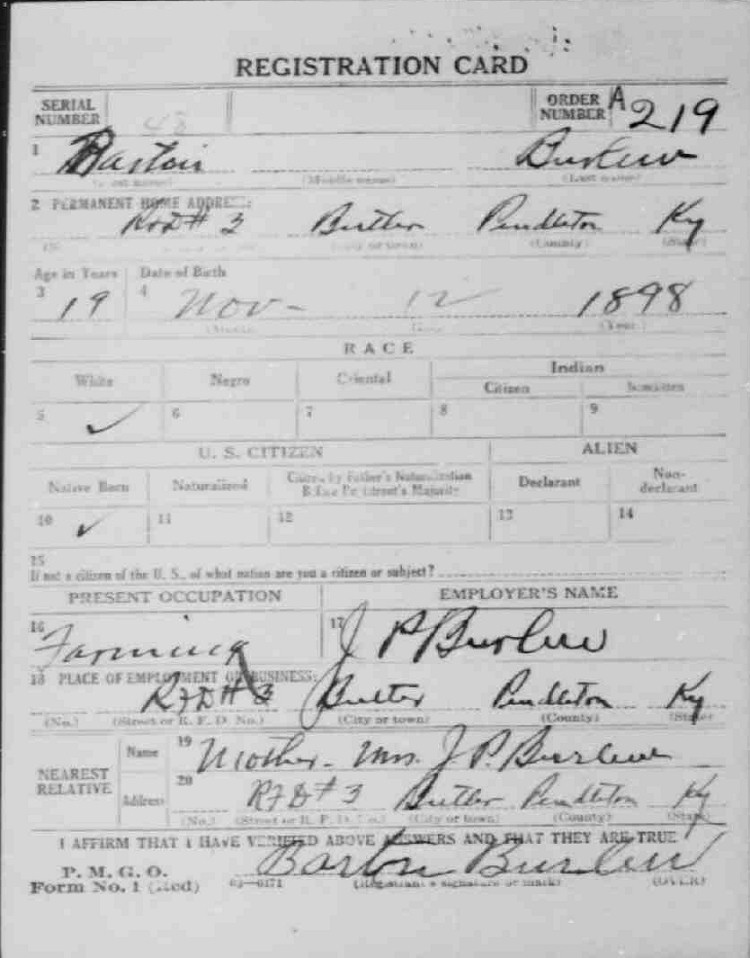 REGISTRATION CARD
SERIAL NUMBER 48 ORDER NUMBER A 219
1 Barton Burlew
(First name) (Middle name) (Last name)
2 PERMANENT HOME ADDRESS:
RFD # 3 Butler Pendleton Ky
(No.) (City or town) (County) (State)
Age in Years Date of Birth
3 19 4 Nov - 12 1898
(Month) (Day) (Year)
RACE
White Negro Oriental Indian
Citizen Noncitizen
5 ✓ 6 7 8 9
U. S. CITIZEN ALIEN
Native Born Naturalized Citizen by Father's Naturalization Before Registrant's Majority Declarant Non-declarant
10 ✓ 11 12 13 14
15
If not a citizen of the U. S., of what nation are you a citizen or subject?
PRESENT OCCUPATION EMPLOYER'S NAME
16 Farming 17 J P Burlew
18 PLACE OF EMPLOYMENT OR BUSINESS:
RFD # 3 Butler Pendleton Ky
(No.) (Street or R. F. D. No.) (City or town) (County) (State)
NEAREST RELATIVE Name 19 Mother - Mrs. J. P. Burlew
Address 20 RFD # 3 Butler Pendleton Ky
(No.) (Street or R. F. D. No.) (City or town) (County) (State)
I AFFIRM THAT I HAVE VERIFIED ABOVE ANSWERS AND THAT THEY ARE TRUE
Barton Burlew
P. M. G. O.
Form No. 1 (Red) 03—6171 (Registrant's signature or mark) (OVER)